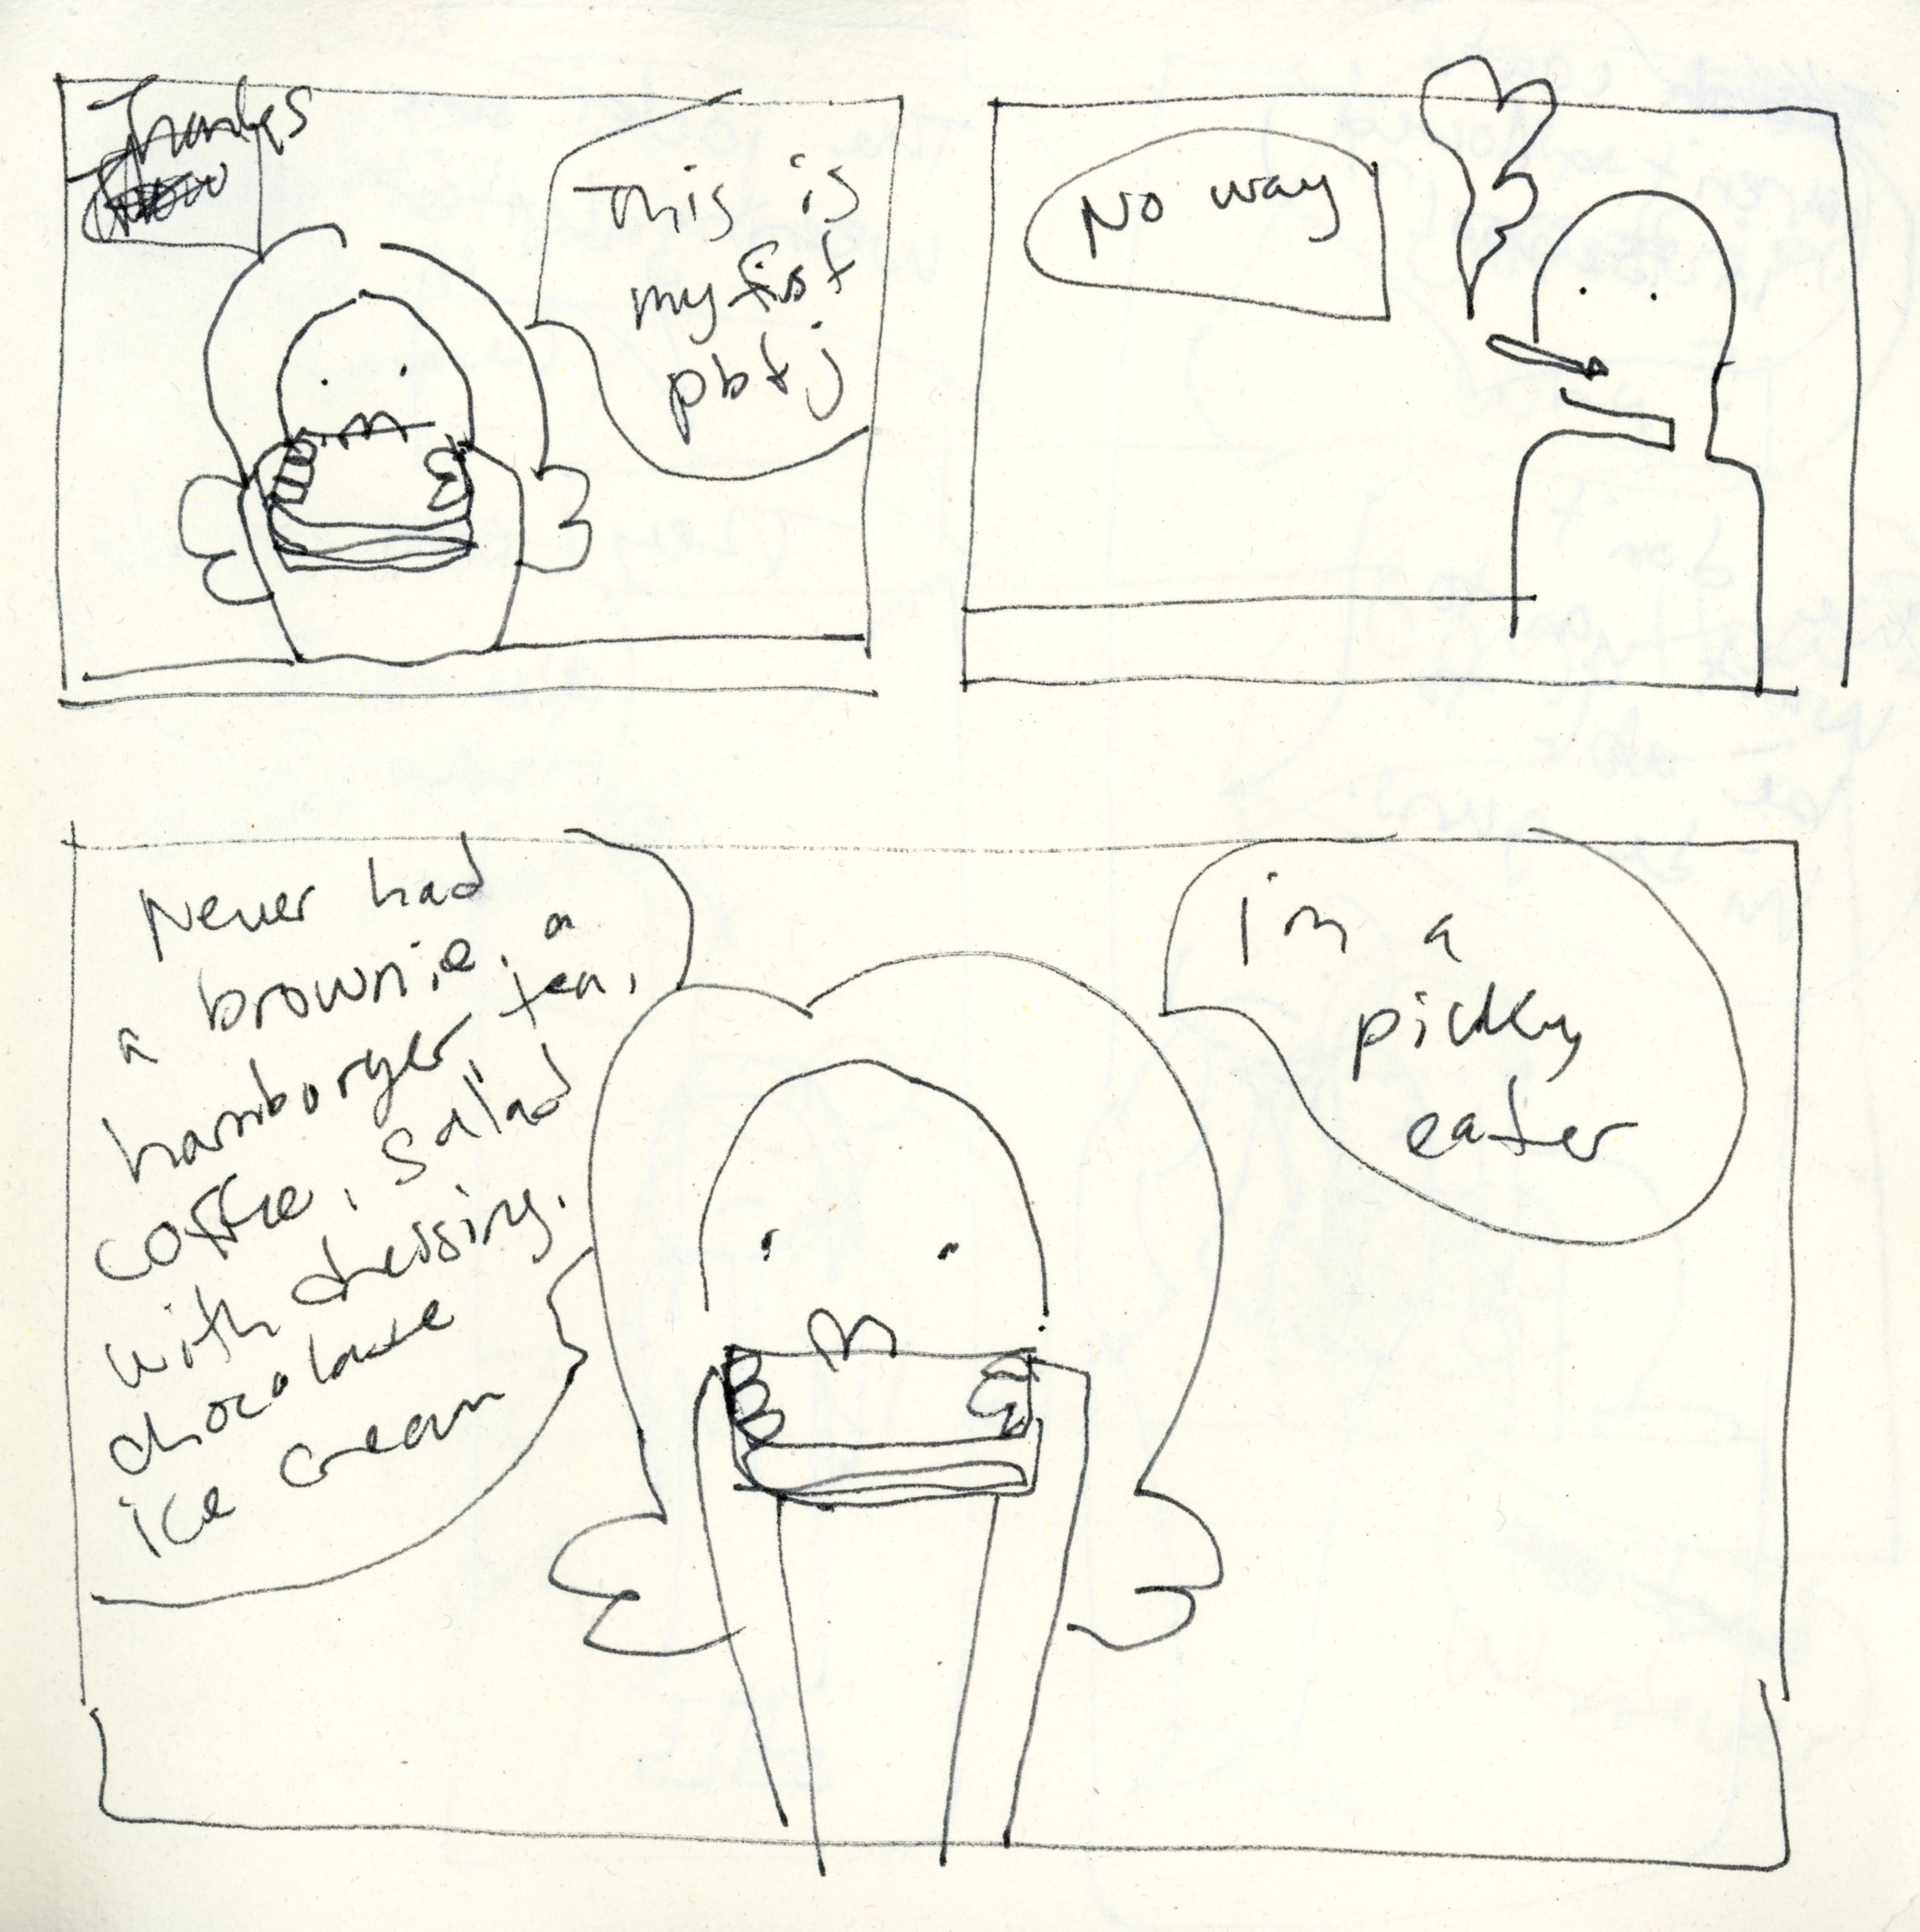 Thanks
This is
my first
pb+j
No way
Never had
a brownie, a
hamburger, tea,
coffee, salad
with dressing,
chocolate
ice cream
i'm a
picky
eater